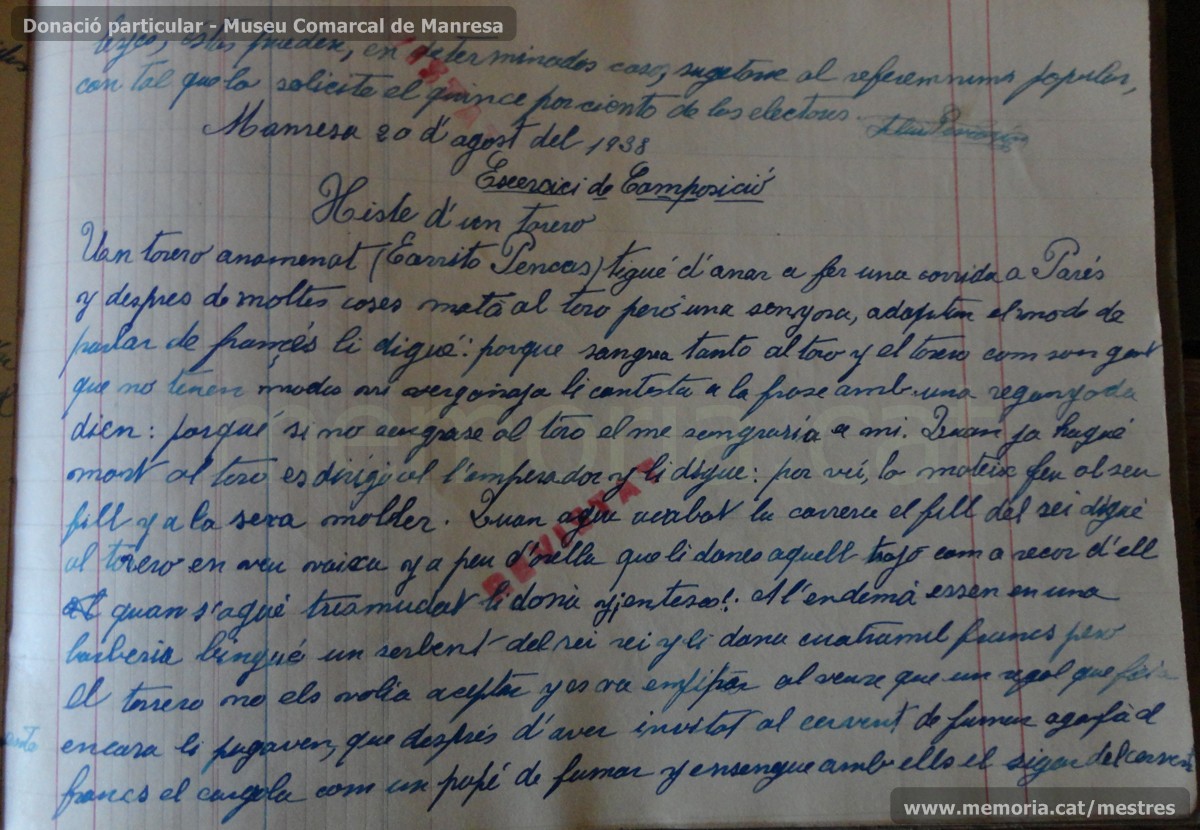 Donació particular - Museu Comarcal de Manresa
estas pueden, en determinados casos, sugetarse al referemnums popular,
con tal que lo solicite el quince por ciento de los electores.
Manresa 20 d'agost del 1938
Excersici de Composició
Histe d'un torero
Un torero anamenat (Currito Pencas) tigué d'anar a fer una corrida a Parés
y despres de moltes coses matà al toro però una senyora, adaptan el modo de
parlar de francés li digué: porque sangra tanto al toro y el torero com son gent
que no tenen modos ni vergonya li contesta a la frase amb una regonyada
dien: porqué si no sangrase al toro el me sangraria a mi. Quan ja hagué
mort al toro es dirigí al l'emperador y li digue: por vú, lo mateix feu al seu
fill y a la seva moller. Quan agué acabat la carrera el fill del rei digué
al torero en veu vaixa y a peu d'orella que li dones aquell trajo com a recor d'ell
quan s'agué tramudat li donà y . A l'endemà essen en una
barberia bingué un serbent del rei rei y li dana cuatramil francs pero
el torrero no els volia aceptar y es va enfipar al veure que un regal que feia
encara li pagaven, que després d'aver invitat al cervent de fumar agafà el
francs el cargola com un papé de fumar y ensengue amb ells el sigar del cervent
REVISTAT
memoria.cat
www.memoria.cat/mestres